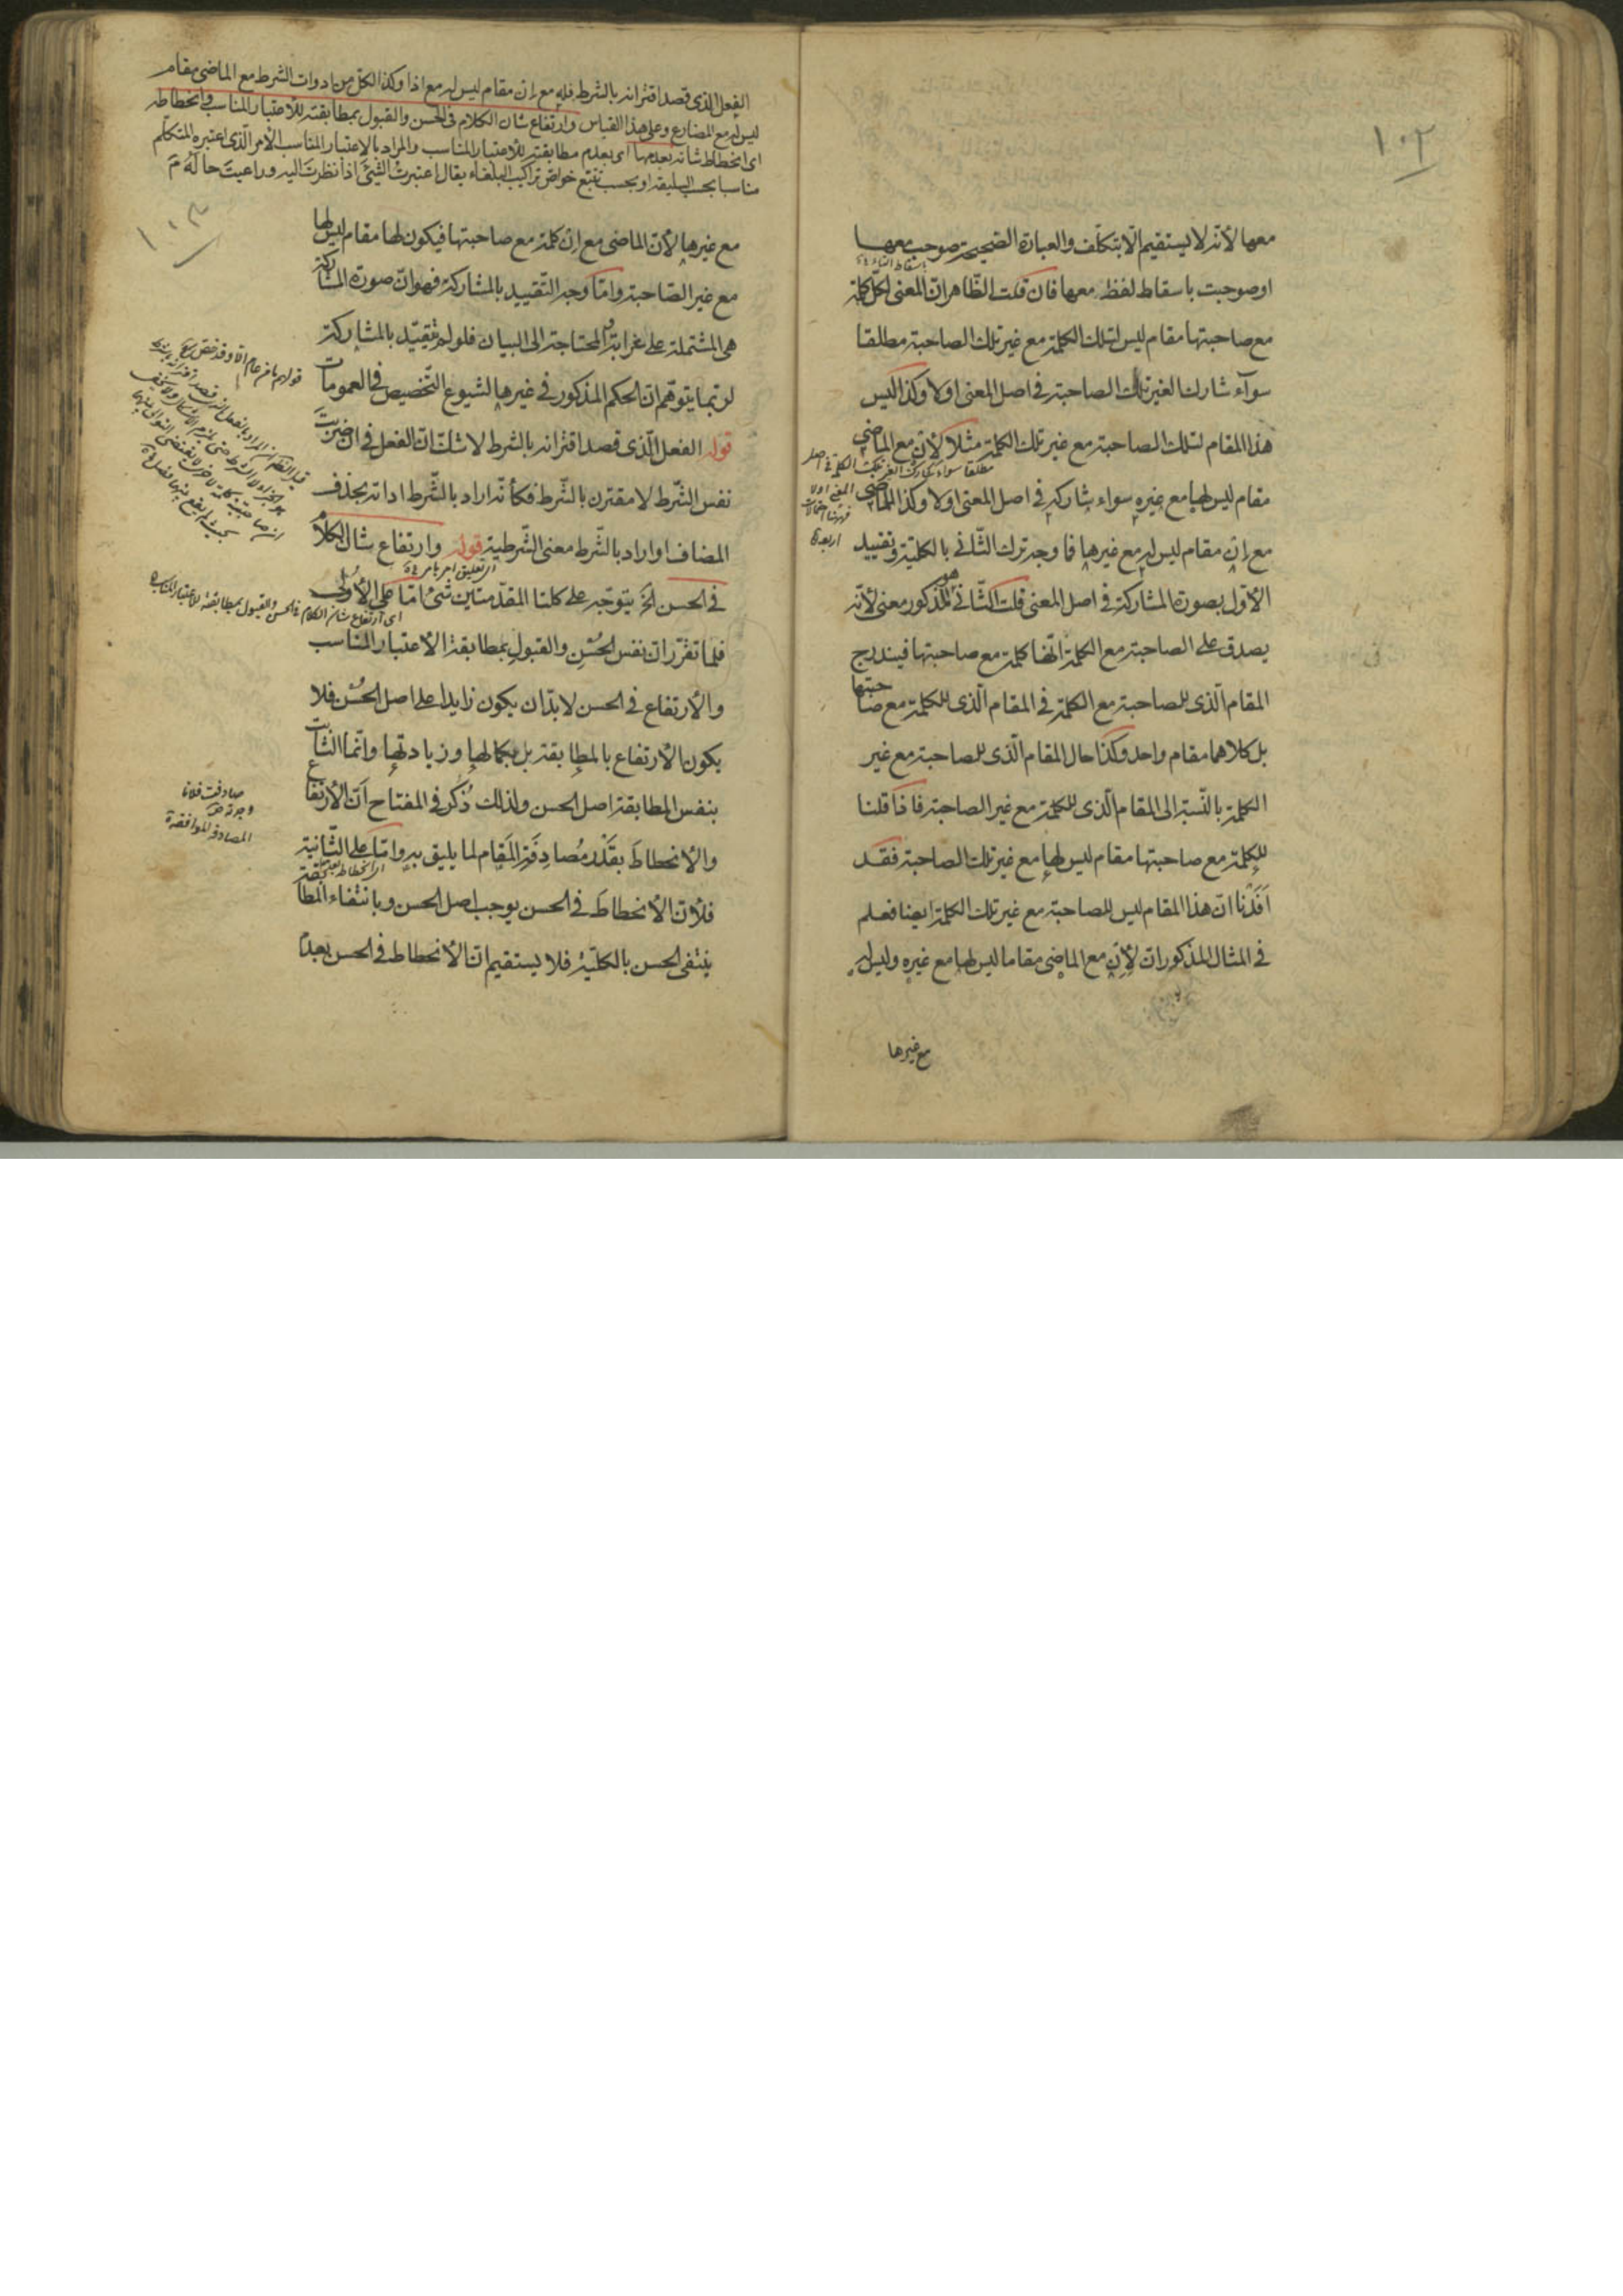 ١٠٢
معها لأنه لا يستقيم الا بتكلف والعبارة الصحيحة صوحب معها
باسقاط التاء
او صوحبت باسقاط لفظ معها فان قلت الظاهر ان المعنى لكل كلمة
مع صاحبتها مقام ليس لتلك الكلمة مع غير تلك الصاحبة مطلقا
سوآء شارك الغير تلك الصاحبة في اصل المعنى اولا وكذا ليس
هذا المقام لتلك الصاحبة مع غير تلك الكلمة مثلا لأن مع الماضي
مطلقا سواء شارك الغير تلك الكلمة في اصل
المعنى اولا
فهنا احتمالات
اربعة
مقام ليس لها مع غيره سواء شاركه في اصل المعنى اولا وكذا للماضي
مع إن مقام ليس له مع غيرها فما وجه ترك الثاني بالكلية وتقييد
الأول بصورة المشاركة في اصل المعنى قلت الثاني هو المذكور معنى لأنه
يصدق على الصاحبة مع الكلمة انها كلمة مع صاحبتها فيندرج
المقام الذي للصاحبة مع الكلمة في المقام الذي للكلمة مع صاحبتها
بل كلاهما مقام واحد وكذا حال المقام الذي للصاحبة مع غير
الكلمة بالنسبة الى المقام الذي للكلمة مع غير الصاحبة فاذا قلنا
للكلمة مع صاحبتها مقام ليس لها مع غير تلك الصاحبة فقد
أفدنا ان هذا المقام ليس للصاحبة مع غير تلك الكلمة ايضا فعلم
في المثال المذكور ان لإن مع الماضي مقاما ليس لها مع غيره وليس له
مع غيرها
الفعل الذي قصد اقترانه بالشرط فله مع إن مقام ليس له مع اذا وكذا لكل من ادوات الشرط مع الماضي مقام
ليس له مع المضارع وعلى هذا القياس وارتفاع شان الكلام في الحسن والقبول بمطابقته للاعتبار المناسب وانحطاطه
اى انحطاط شانه بعدمها اى بعدم مطابقته للاعتبار المناسب والمراد بالاعتبار المناسب الأمر الذي اعتبره المتكلم
مناسبا بحسب السليقة او بحسب تتبع خواص تراكيب البلغاء يقال اعتبرت الشيئ اذا نظرت اليه وراعيت حاله م
١٠٣
مع غيرها لأن الماضي مع إن كلمة مع صاحبتها فيكون لها مقام ليس لها
مع غير الصاحبة واما وجه التقييد بالمشاركة فهو ان صورة المشاركة
هي المشتملة على غرابة والمحتاجة الى البيان فلو لم يقيد بالمشاركة
لربما يتوهم ان الحكم المذكور في غيرها لشيوع التخصيص في العمومات
قوله الفعل الذي قصد اقترانه بالشرط لا شك ان الفعل في ان ضربت
نفس الشرط لا مقترن بالشرط فكأنه اراد بالشرط اداته بحذف
المضاف او اراد بالشرط معنى الشرطية قوله وارتفاع شان الكلام
اى تعليق امر بامر
في الحسن الخ يتوجه على كلتا المقدمتين شئ اما على الأولى
اى ارتفاع شان الكلام في الحسن والقبول بمطابقته للاعتبار المناسب
فلما تقرر ان نفس الحسن والقبول بمطابقة الاعتبار المناسب
والارتفاع في الحسن لا بد ان يكون زايدا على اصل الحسن فلا
يكون الارتفاع بالمطابقة بل بكمالها وزيادتها وانما الثابت
بنفس المطابقة اصل الحسن ولذلك ذكر في المفتاح ان الارتفاع
صادفت فلانا
وجدته
المصادفة الموافقة
والانحطاط بقدر مصادفة المقام لما يليق به واما على الثانية
فلأن الانحطاط في الحسن يوجب اصل الحسن وبانتفاء المطابقة
ينتفي الحسن بالكلية فلا يستقيم ان الانحطاط في الحسن بعدم